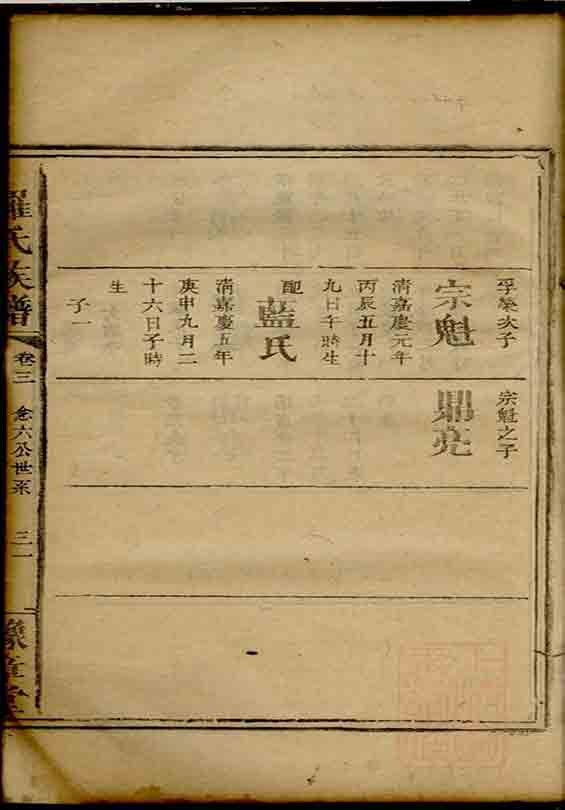 孚榮次子
宗魁
清嘉慶元年
丙辰五月十
九日午時生
配
藍氏
清嘉慶五年
庚申九月二
十六日子時
生
子一
宗魁之子
鼎亮
羅氏族譜
卷三
念六公世系
三一
豫章堂